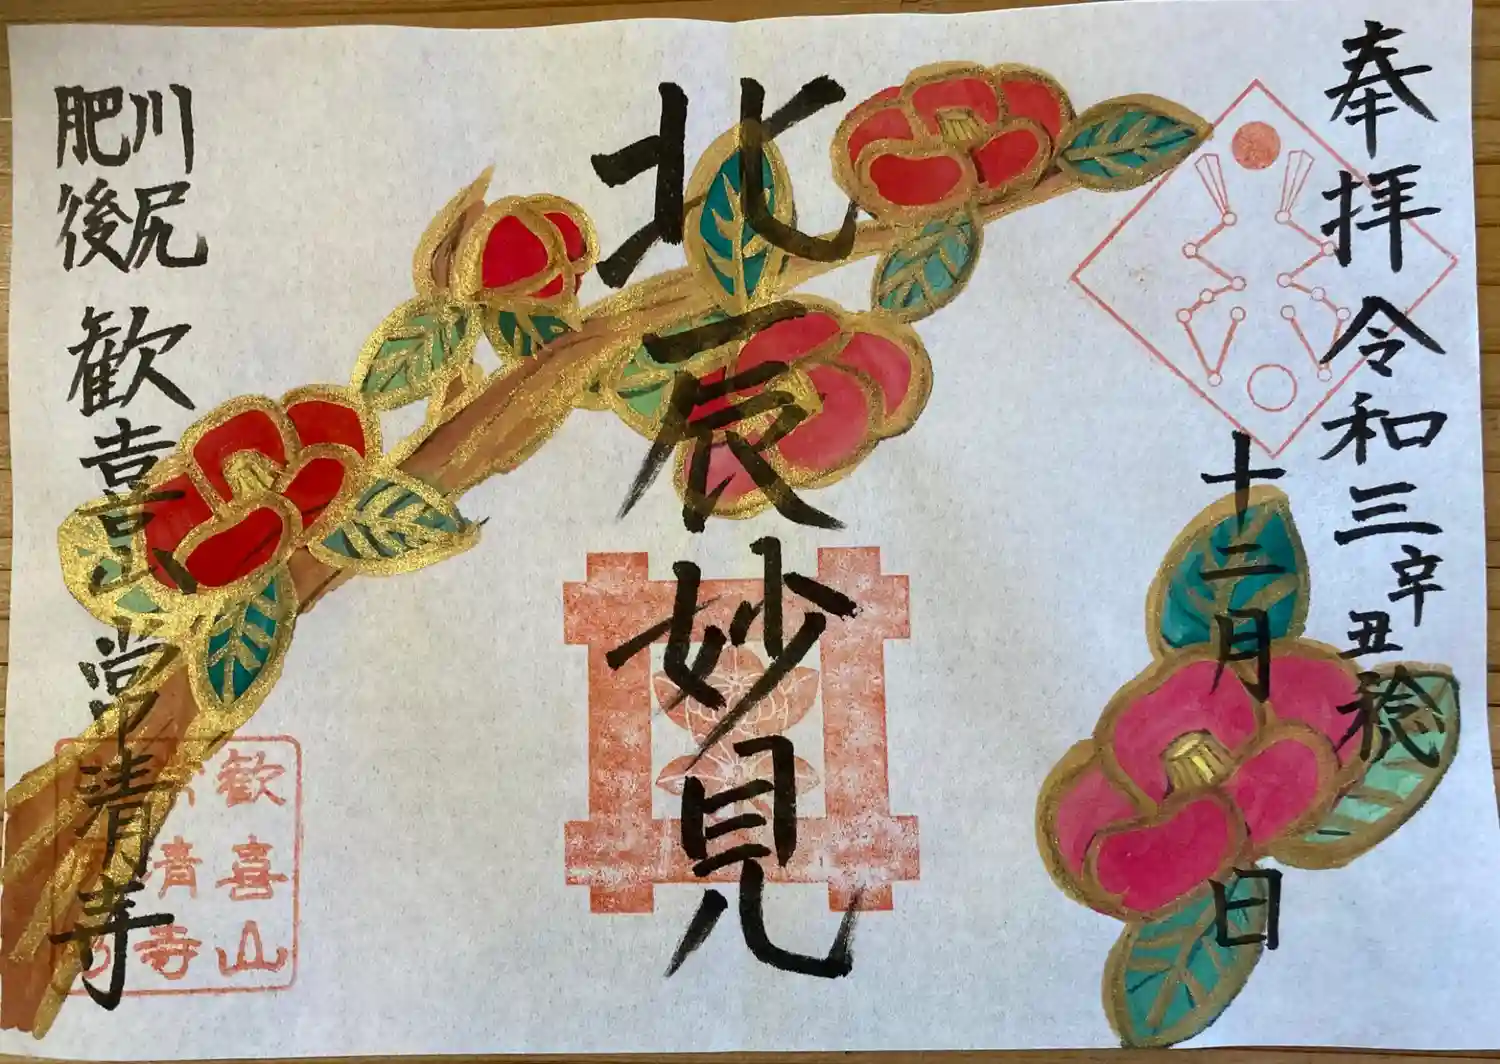 奉拝 令和三辛丑稔
十二月 日
北辰妙見
肥後川尻 歓喜山 常清寺
歓喜山
清寺